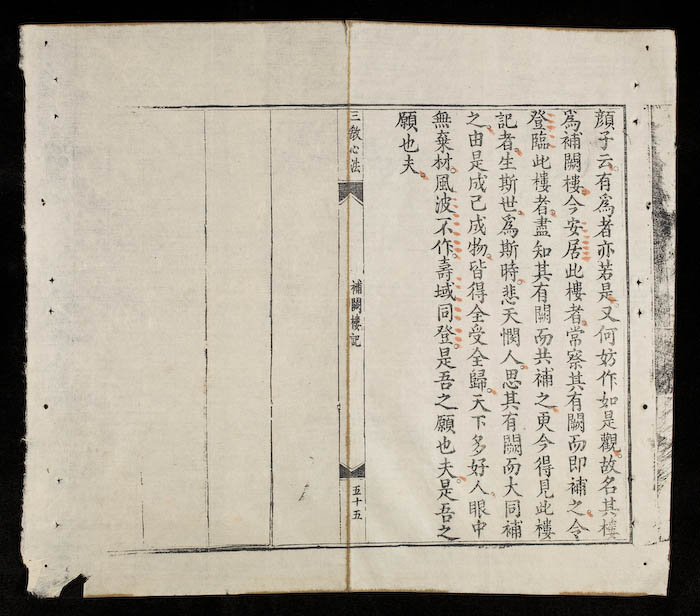 顏子云有爲者亦若是又何妨作如是觀故名其樓
爲補闕樓今安居此樓者常察其有闕而即補之令
登臨此樓者盡知其有闕而共補之更今得見此樓
記者生斯世爲斯時悲天憫人思其有闕而大同補
之由是成己成物皆得全受全歸天下多好人眼中
無棄材風波不作壽域同登是吾之願也夫是吾之
願也夫
三教心法
補闕樓記
五十五